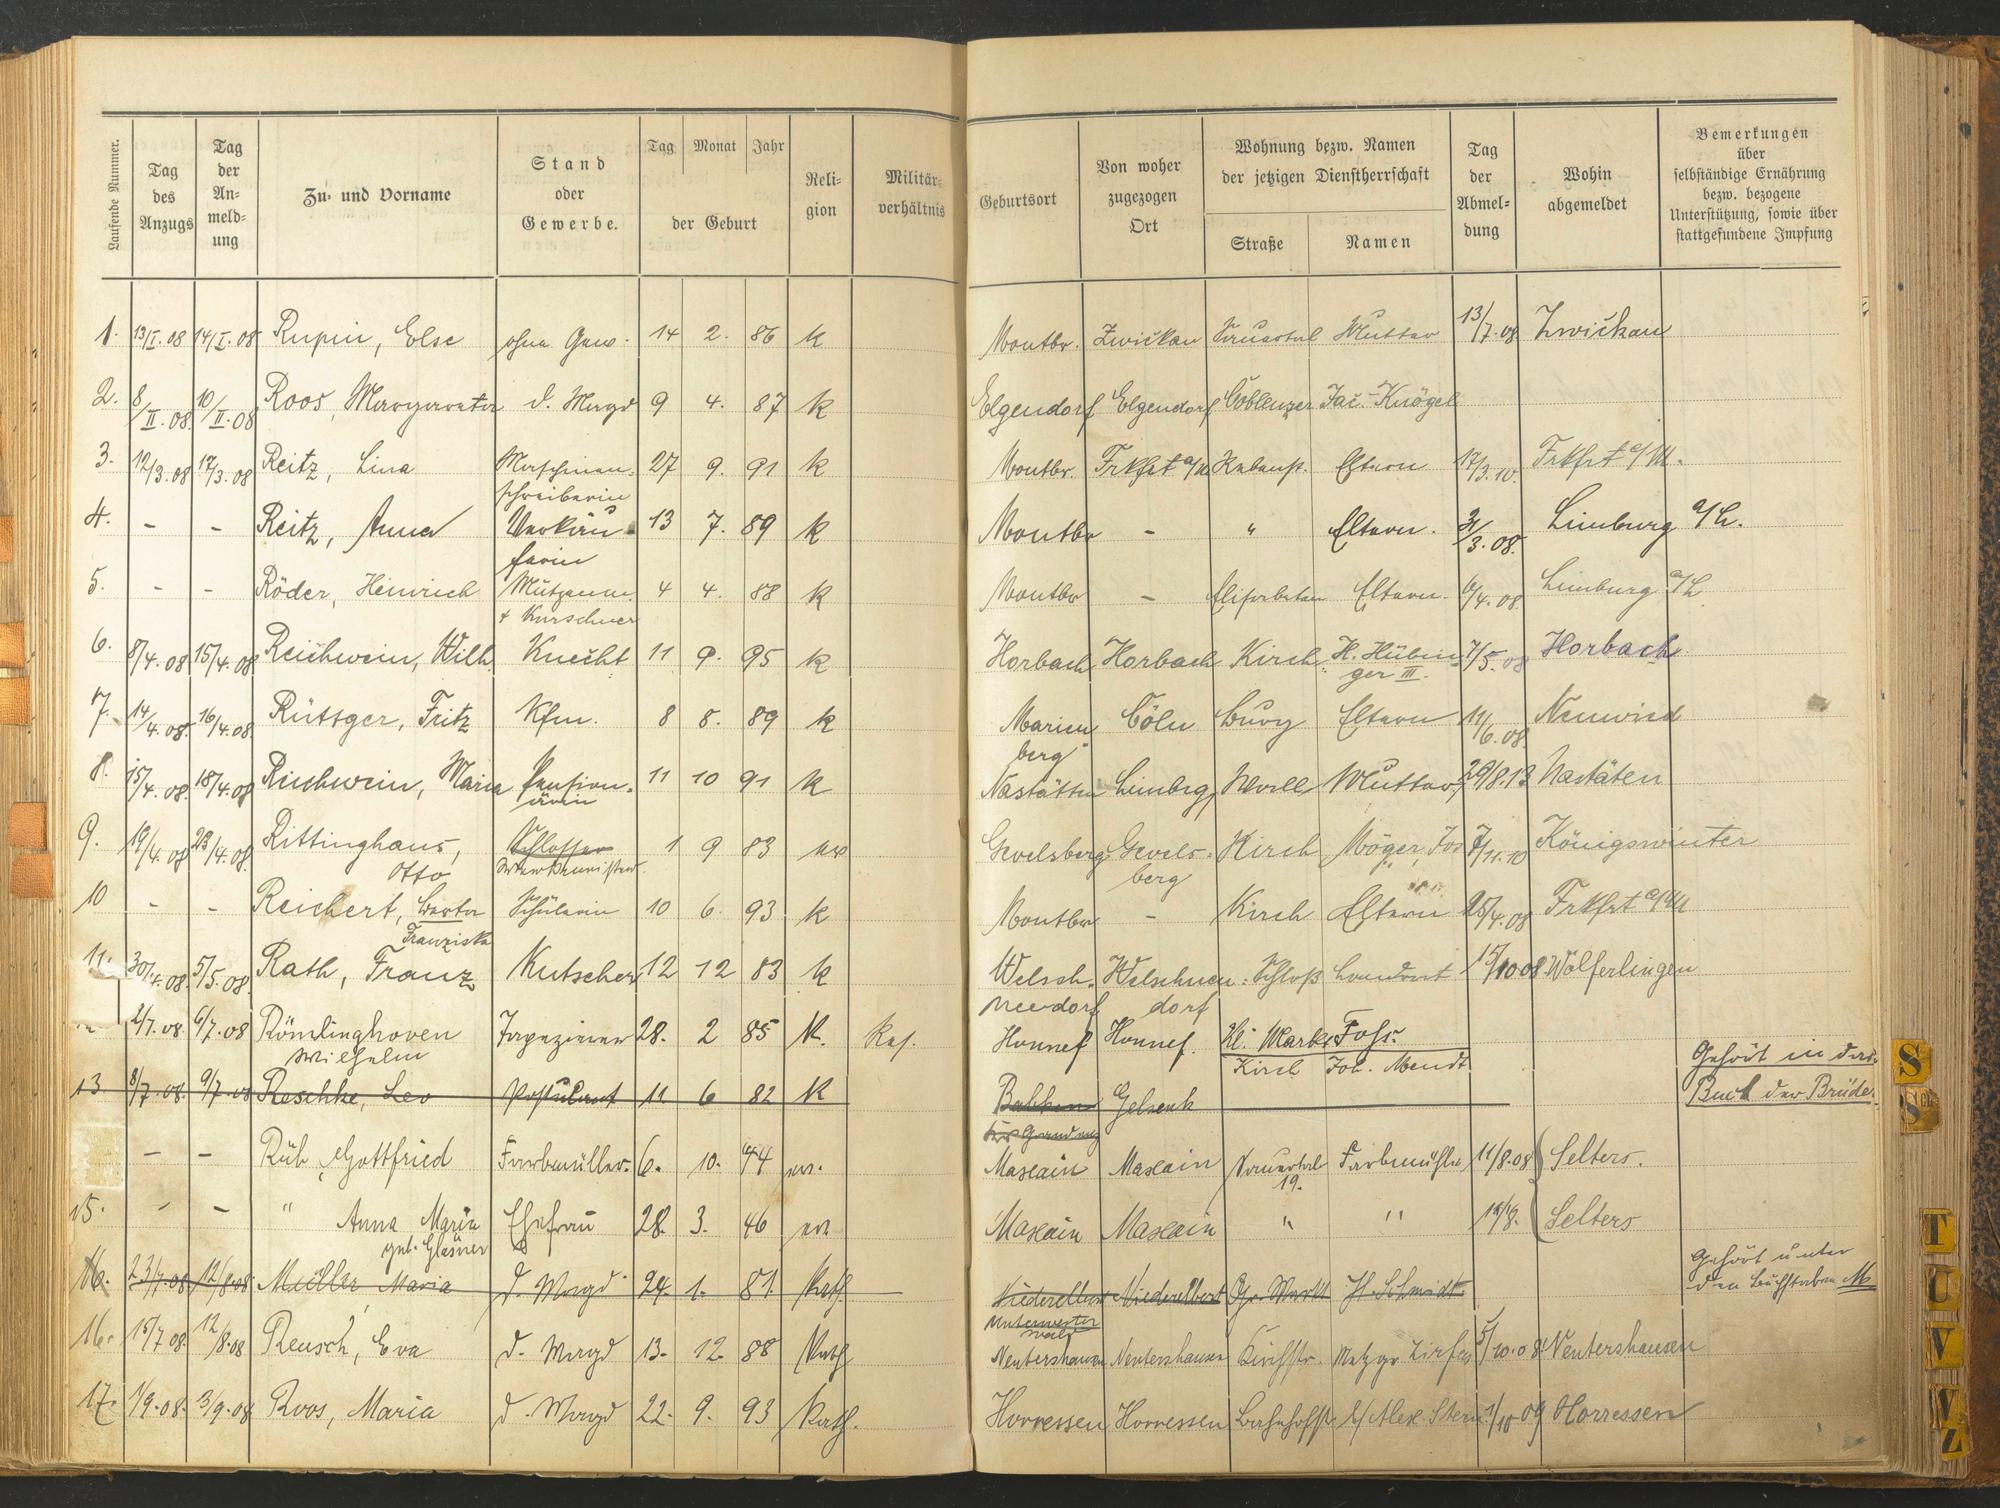 Laufende Nummer.
Tag des Anzugs
Tag der An= meld= ung
Zu= und Vorname
Stand oder Gewerbe.
Tag Monat Jahr
der Geburt
Reli= gion
Militär= verhältnis
Geburtsort
Von woher zugezogen Ort
Wohnung bezw. Namen der jetzigen Dienstherrschaft
Straße Namen
Tag der Abmel= dung
Wohin abgemeldet
Bemerkungen über selbständige Ernährung bezw. bezogene Unterstützung, sowie über stattgefundene Impfung
1. 13/I.08 14/I.08 Rupin, Else ohne Gew. 14 2. 86 k Montbr. Zwickau Sauertal Mutter 13/7.08 Zwickau
2. 8/II.08. 10/II.08 Roos, Margareta d. Magd 9 4. 87 k Elgendorf Elgendorf Coblenzer Jac. Knögel
3. 12/3.08 17/3.08 Reitz, Lina Maschinen= 27 9. 91 k Montbr. Frkfrt a/M Eltern 17/3.10. Frkfrt a/M.
schreiberin
4. - - Reitz, Anna Verkäu= 13 7. 89 k Montbr - " Eltern. 31/3.08. Limburg a/L.
ferin
5. - - Röder, Heinrich Mützenm. 4 4. 88 k Montbr - Elisabeten Eltern. 6/4.08. Limburg a/L
+ Kürschner
6. 8/4.08 15/4.08 Reichwein, Wilh. Knecht 11 9. 95 k Horbach Horbach Kirch H. Hübin= 7/5.08 Horbach
ger III.
7. 14/4.08. 16/4.08 Rüttger, Fritz Kfm. 8 8. 89 k Marien Cöln Burg Eltern 11/6.08. Neuwied
berg
8. 15/4.08. 18/4.08 Reichwein, Maria Pension= 11 10 91 k Nastätten Limbrg Wall Mutter 29/8.13 Nastäten
ärin
9. 19/4.08 23/4.08. Rittinghaus, Schlosser 1 9 83 ev Gevelsberg Gevels= Kirch Möger, Jos 7/11.10 Königswinter
Otto berg
10 - - Reichert, Berta Schülerin 10 6. 93 k Montbr - Kirch Eltern 25/4.08 Frkfrt a/M
Franziska
11. 30/4.08. 5/5.08. Rath, Franz Kutscher 12 12 83 k Welsch= Welschneu= Schloß Landrat 15/10 08 Wölferlingen
neudorf dorf
2/7.08. 6/7.08 Römlinghoven Tapezierer 28. 2 85 K. Honnef Honnef. Kl. Markt Fohr.
Wilhelm Kirch Joh. Mendt
13 8/7.08. 9/7.08 Reschke, Leo Postulant 11 6 82 K Gelsenk Gehört in das
Buch der Brüder
- - Rüb, Gottfried Farbmüller. 6. 10. 44 ev. Maxain Maxain Sauertal Farbmühle 11/8.08 Selters.
19.
15. - - " Anna Maria Ehefrau 28. 3. 46 ev Maxain Maxain " " 11/8. Selters
geb. Glasner
16. 23/7.08 12/8.08 Müller Maria d. Magd 24. 1. 81. Kath. Niederelbert Niederelbert Gr. Markt H. Schmidt. Gehört unter
den Buchstaben M
Unterwester
wald
16. 15/7 08. 12/8.08 Reusch, Eva d. Magd 13. 12. 88 Kath Nentershausen Nentershausen Kirchstr. Metzger Zirfas 5/10.08. Nentershausen
17. 1/9.08. 3/9.08 Roos, Maria d. Magd 22. 9. 93 Kath. Horressen Horressen Bahnhofstr b/ Alex. Stern 1/10 09 Horressen
S
Sch
T
U
V
W
Z